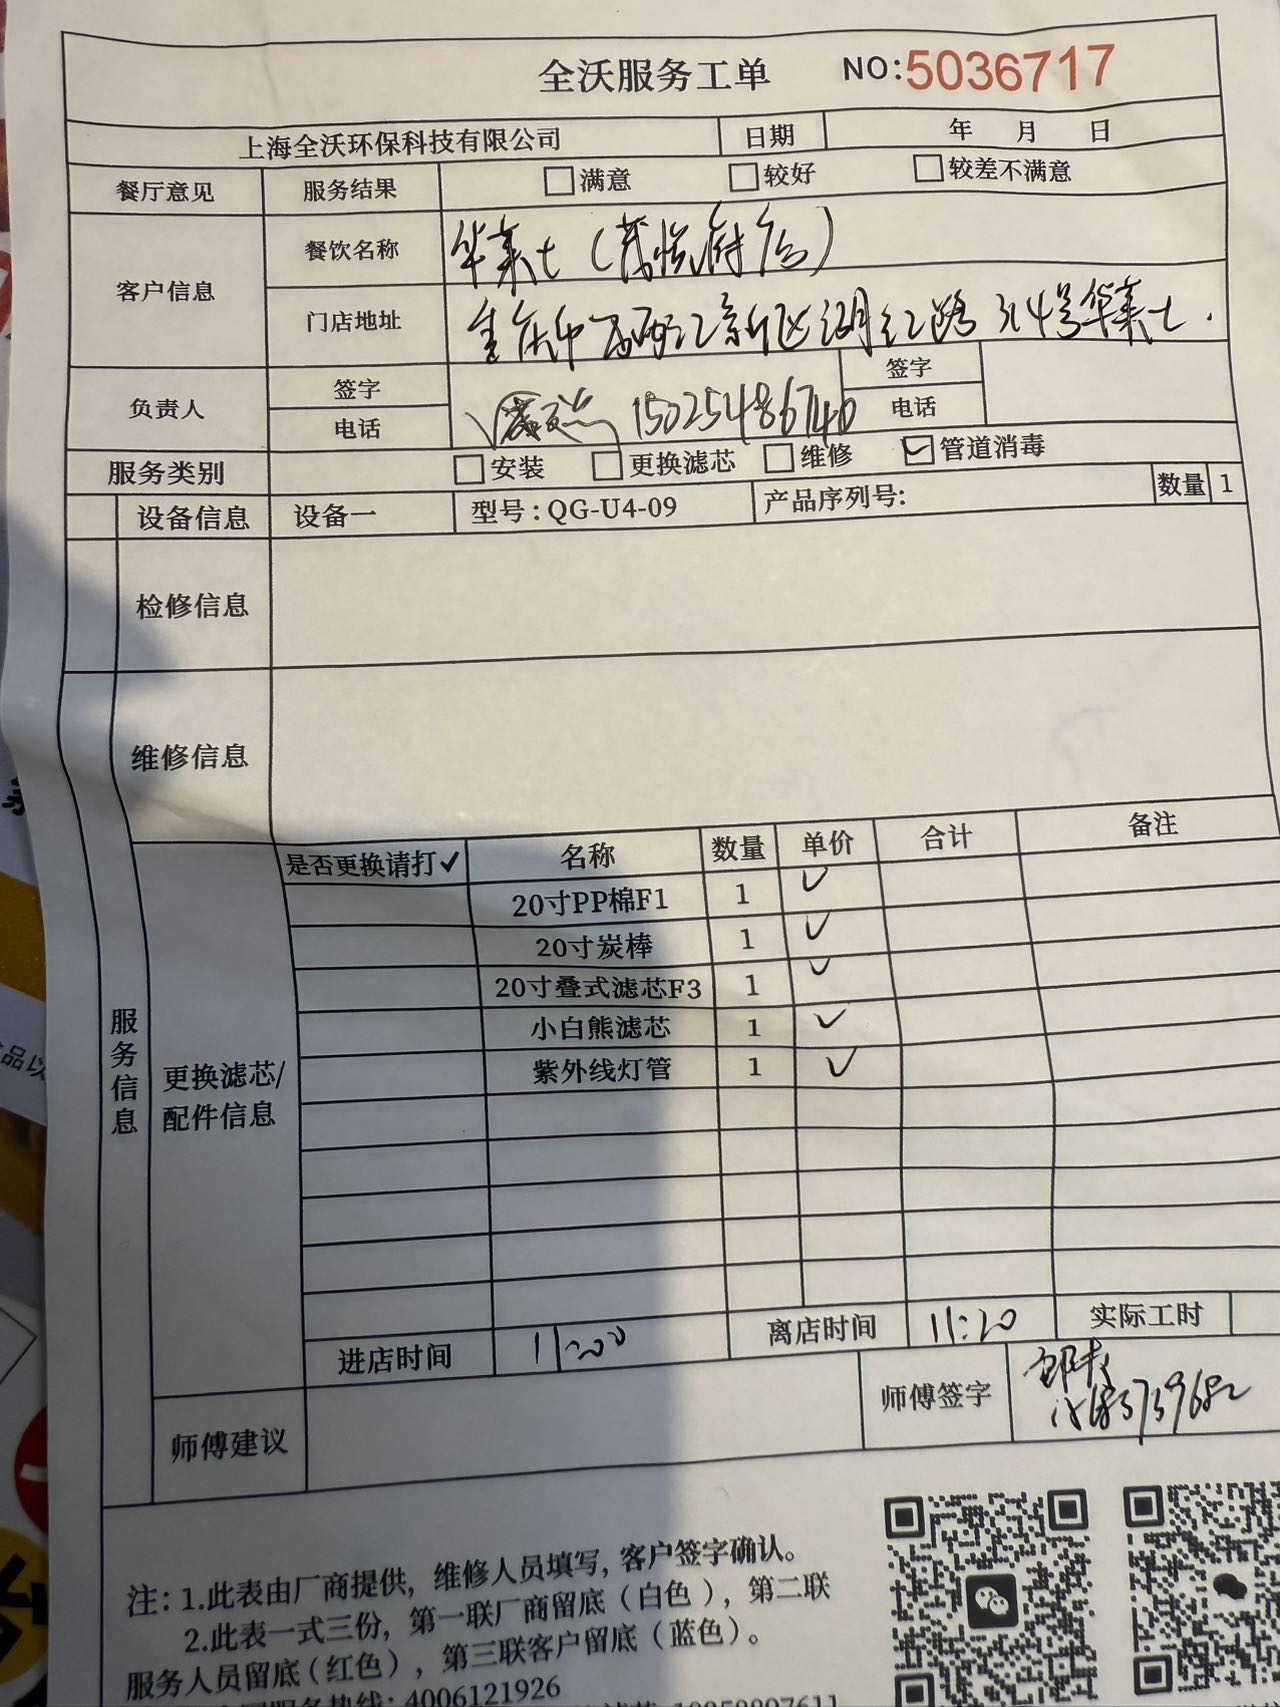 全沃服务工单 NO:5036717
上海全沃环保科技有限公司 日期 年 月 日
餐厅意见 服务结果 满意 较好 较差不满意
客户信息 餐饮名称 华莱士(茂悦府店)
门店地址 重庆市 两江新区湖红路314号华莱士.
负责人 签字 签字
电话 15025486740 电话
服务类别 安装 更换滤芯 维修 ✓管道消毒
设备信息 设备一 型号:QG-U4-09 产品序列号: 数量 1
检修信息
维修信息
服务信息
更换滤芯/
配件信息
是否更换请打✓ 名称 数量 单价 合计 备注
20寸PP棉F1 1 ✓
20寸炭棒 1 ✓
20寸叠式滤芯F3 1 ✓
小白熊滤芯 1 ✓
紫外线灯管 1 ✓
进店时间 11:00 离店时间 11:20 实际工时
师傅建议 师傅签字
注:1.此表由厂商提供,维修人员填写,客户签字确认。
2.此表一式三份,第一联厂商留底(白色),第二联
服务人员留底(红色),第三联客户留底(蓝色)。
服务热线:4006121926